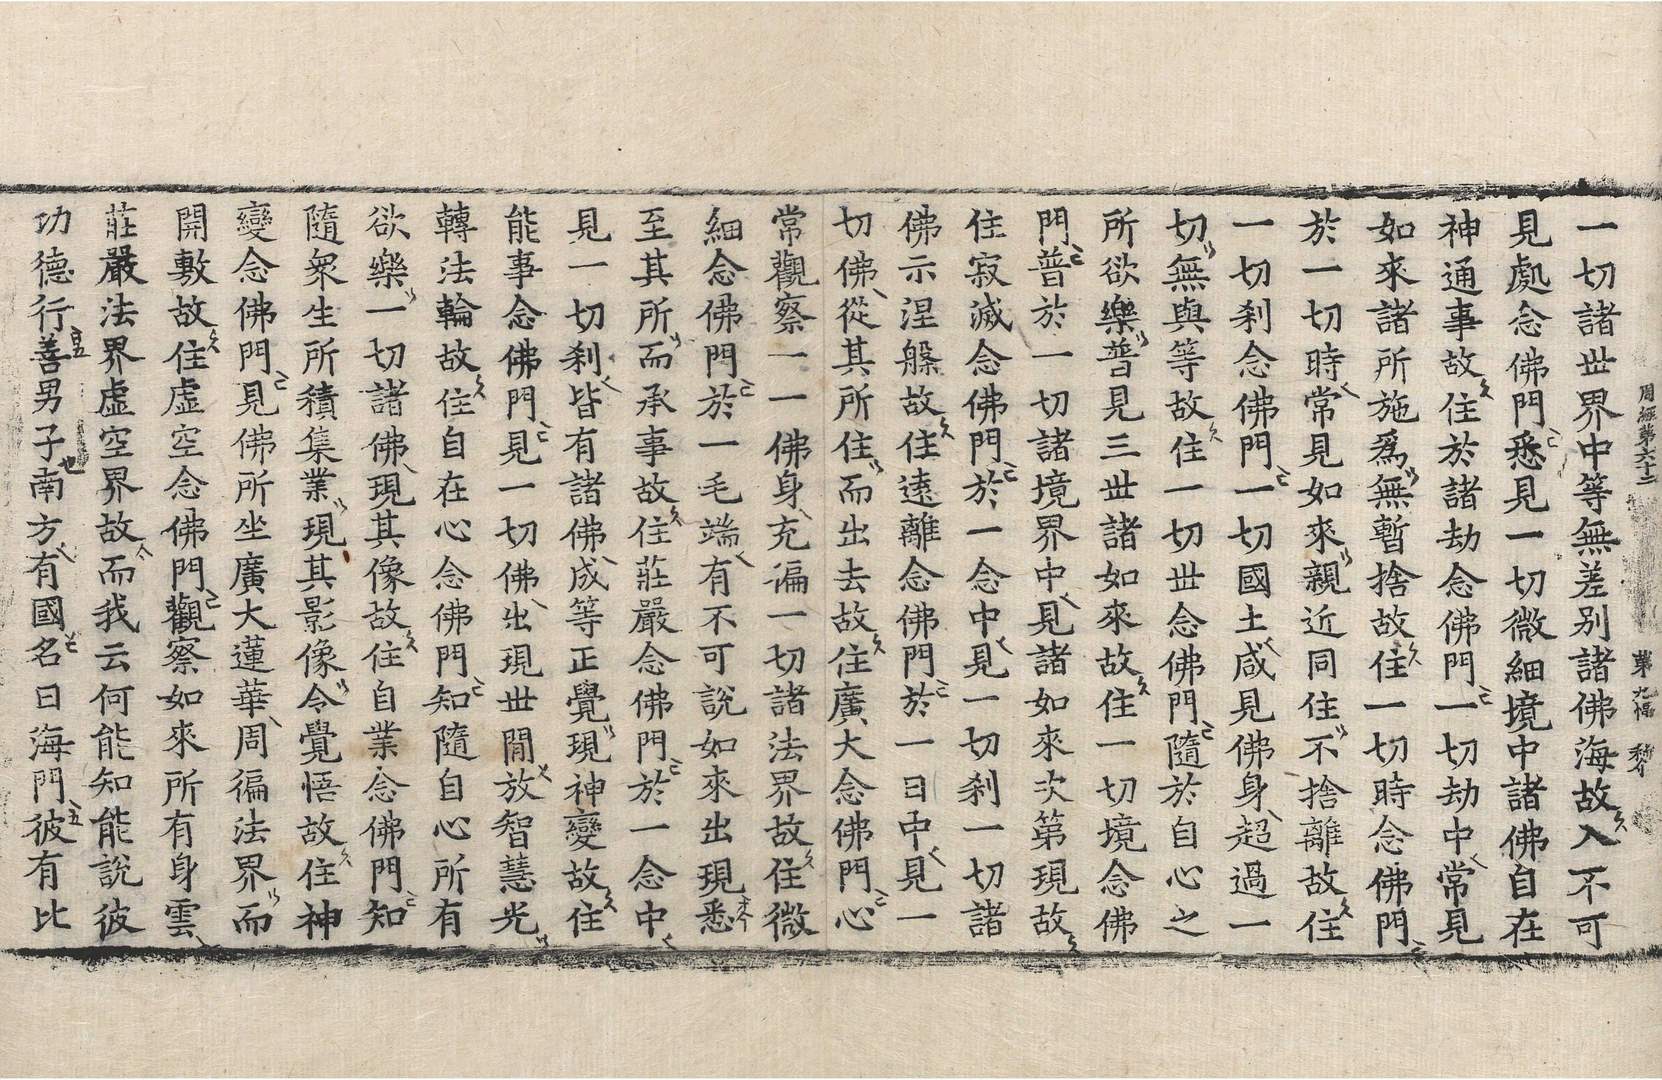 周經第六十二 第九幅
一切諸世界中等無差別諸佛海故入不可
見處念佛門悉見一切微細境中諸佛自在
神通事故住於諸劫念佛門一切劫中常見
如來諸所施爲無暫捨故住一切時念佛門
於一切時常見如來親近同住不捨離故住
一切刹念佛門一切國土咸見佛身超過一
切無與等故住一切世念佛門隨於自心之
所欲樂普見三世諸如來故住一切境念佛
門普於一切諸境界中見諸如來次第現故
住寂滅念佛門於一念中見一切刹一切諸
佛示涅槃故住遠離念佛門於一日中見一
切佛從其所住而出去故住廣大念佛門心
常觀察一一佛身充徧一切諸法界故住微
細念佛門於一毛端有不可說如來出現悉
至其所而承事故住莊嚴念佛門於一念中
見一切刹皆有諸佛成等正覺現神變故住
能事念佛門見一切佛出現世間放智慧光
轉法輪故住自在心念佛門知隨自心所有
欲樂一切諸佛現其像故住自業念佛門知
隨衆生所積集業現其影像令覺悟故住神
變念佛門見佛所坐廣大蓮華周徧法界而
開敷故住虛空念佛門觀察如來所有身雲
莊嚴法界虛空界故而我云何能知能說彼
功德行善男子南方有國名曰海門彼有比